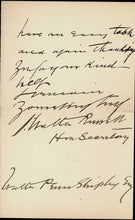 have an easy task
and again thanking
you for your kind
help
I remain
Yours very truly
J. Walter Russell
Hon Secretary
Walter Penn Shipley Esq